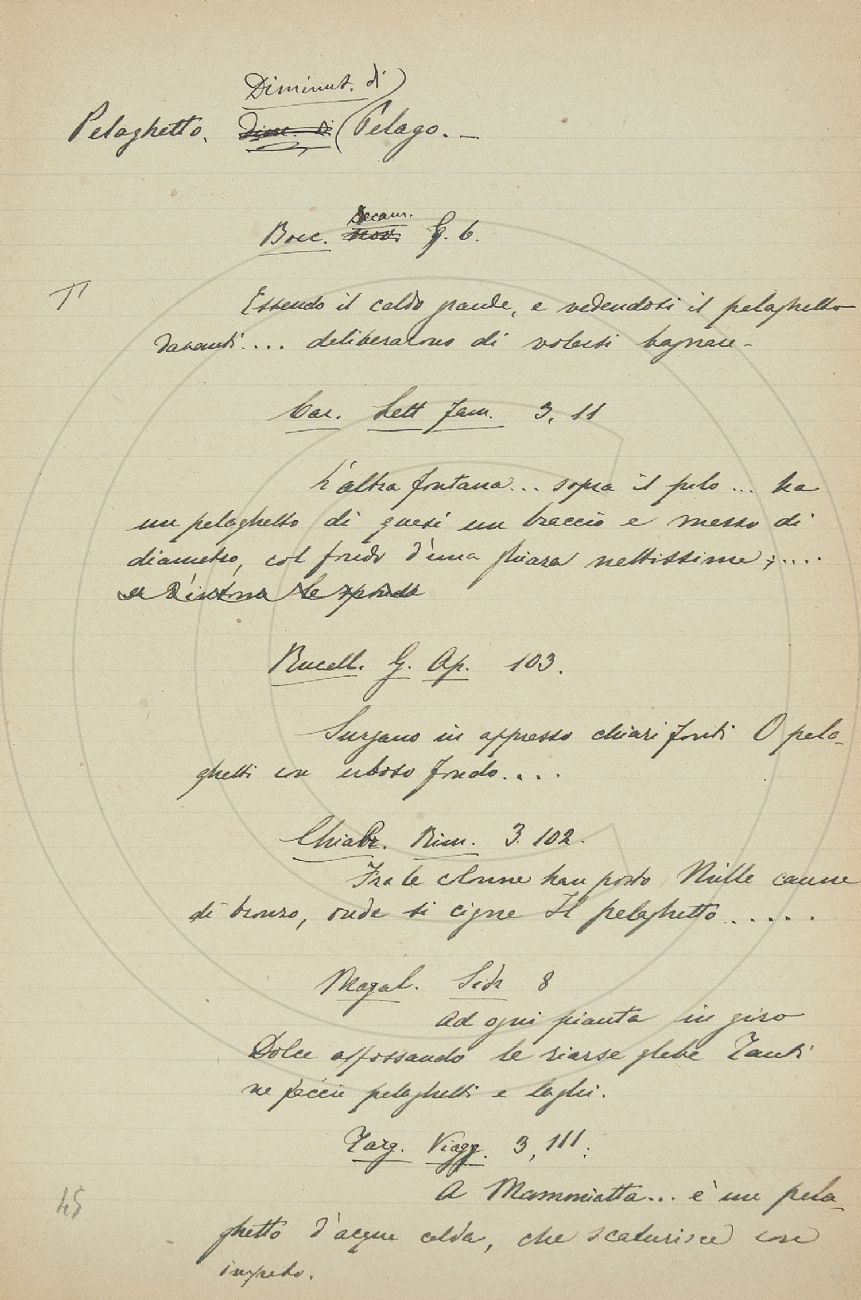 Diminut. di
Pelaghetto. Dim. di (Pelago. –
Decam.
Bocc. nov. g. 6.
Essendo il caldo grande, e vedendosi il pelaghetto
davanti.... deliberarono di volersi bagnare –
Car. Lett fam. 3, 11
L'altra fontana... sopra il ... ha
un pelaghetto di quasi un braccio e mezzo di
diametro, col fondo d'una ghiara nettissima;....
e d'intorno le sponde
Rucell. G. Ap. 103.
Surgano in appresso chiari fonti O pela-
ghetti con erboso fondo....
Chiabr. Rim. 3. 102.
Fra le colonne han posto Mille canne
di bronzo, onde si cigne Il pelaghetto......
Magal. Sidr 8
Ad ogni pianta in giro
Dolce affossando le riarse glebe Tanti
ne faccio pelaghetti e laghi.
Targ. Viagg. 3, 111.
A ... è un pela-
ghetto d'acqua calda, che scaturisce con
impeto.
45